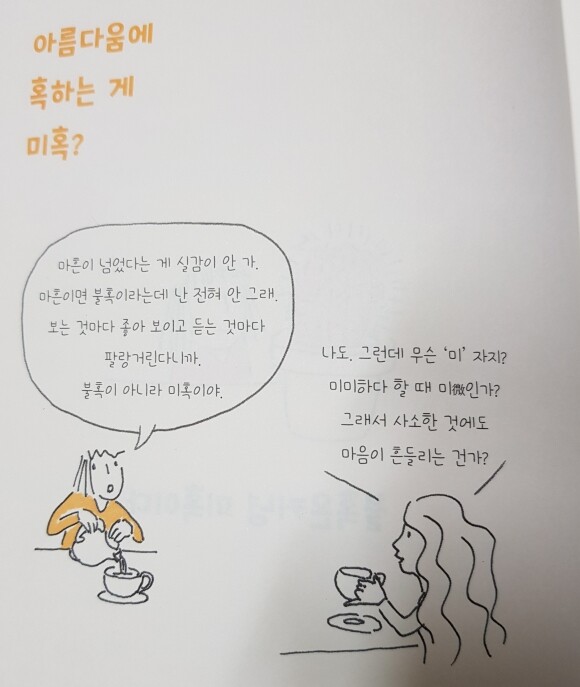 아름다움에
혹하는 게
미혹?
마흔이 넘었다는 게 실감이 안 가.
마흔이면 불혹이라는데 난 전혀 안 그래.
보는 것마다 좋아 보이고 듣는 것마다
팔랑거린다니까.
불혹이 아니라 미혹이야.
나도. 그런데 무슨 ‘미’ 자지?
미미하다 할 때 미微인가?
그래서 사소한 것에도
마음이 흔들리는 건가?